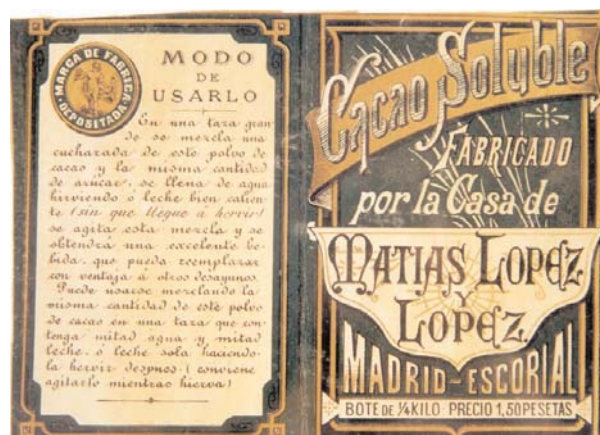 MARCA DE FABRICA
DEPOSITADA
MODO
DE
USARLO
En una taza gran
de se mezcla una
cucharada de este polvo de
cacao y la misma cantidad
de azúcar, se llena de agua
hirviendo ó leche bien calien-
te (sin que llegue a hervir)
se agita esta mezcla y se
obtendrá una excelente be-
bida, que puede reemplazar
con ventaja á otros desayunos.
Puede usarse mezclando la
misma cantidad de este polvo
de cacao en una taza que con-
tenga mitad agua y mitad
leche, ó leche sola hacendo-
la hervir despues (conviene
agitarlo mientras hierva)
Cacao Soluble
FABRICADO
por la Casa de
MATIAS LOPEZ
Y
LOPEZ
MADRID-ESCORIAL
BOTE DE 1/4 KILO PRECIO 1,50 PESETAS